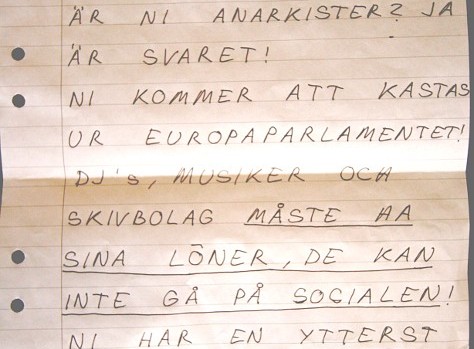 ÄR NI ANARKISTER? JA
ÄR SVARET!
NI KOMMER ATT KASTAS
UR EUROPAPARLAMENTET!
DJ's, MUSIKER OCH
SKIVBOLAG MÅSTE HA
SINA LÖNER, DE KAN
INTE GÅ PÅ SOCIALEN!
NI HAR EN YTTERST